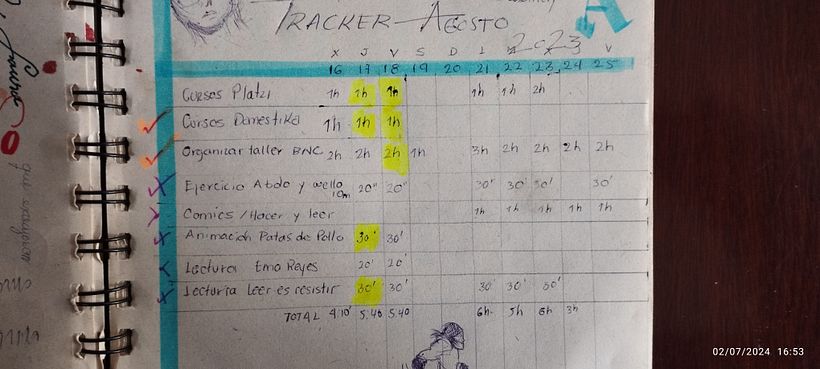 TRACKER AGOSTO
2023
X J V S D L M X J V
16 17 18 19 20 21 22 23 24 25
Cursos Platzi 1h 1h 1h 1h 1h 2h
Cursos Domestika 1h 1h 1h
Organizar taller BNC 2h 2h 2h 1h 3h 2h 2h 2h 2h
Ejercicio Abdo y cuello 10m 20" 20" 30' 30' 30' 30'
Comics / Hacer y leer 1h 1h 1h 1h 1h
Animación Patas de Pollo 30' 30'
Lectura Emo Reyes 20' 20'
Lectura Leer es resistir 30' 30' 30' 30' 30'
TOTAL 4.10' 5.40 5.40 6h. 5h 6h 3h
02/07/2024 16:53